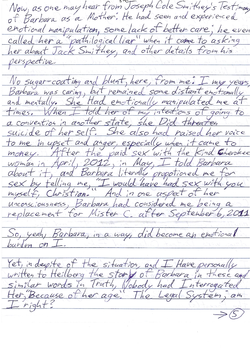 Now, as one may hear from Joseph Cole Smithey's Testimony
of Barbara as a Mother: He had seen and experienced
emotional manipulation, some lack of better care; he even
called her a "pathilogical liar" when it came to asking
her about Jack Smithey, and other details from his
perspective.
No sugar-coating and blunt, here, from me: I may years,
Barbara was caring, but remained some distant emotionally
and mentally. She Had emotionally manipulated me at
times. When I told her of my intentions of going to
a convention in another state, she Did threaten
suicide of her self. She also had raised her voice
to me in upset and anger, especially when it came to
money. After the paid sex with the Kind Cherokee
woman in April, 2012, in May, I told Barbara
about it, and Barbara literally propositioned me for
sex by telling me, "I would have had sex with you
myself, Christian." And in one respect of her
unconsciousness, Barbara had considered me being a
replacement for Mister C. after September 6, 2011
So, yeah, Barbara, in a way, did become an emotional
burden on I.
Yet, in despite of the situation, and I Have personally
written to Heilberg the story of Barbara in these and
similar words in Truth, Nobody had Interrogated
Her, "Because of her age." The Legal System, am
I right?
→ 5